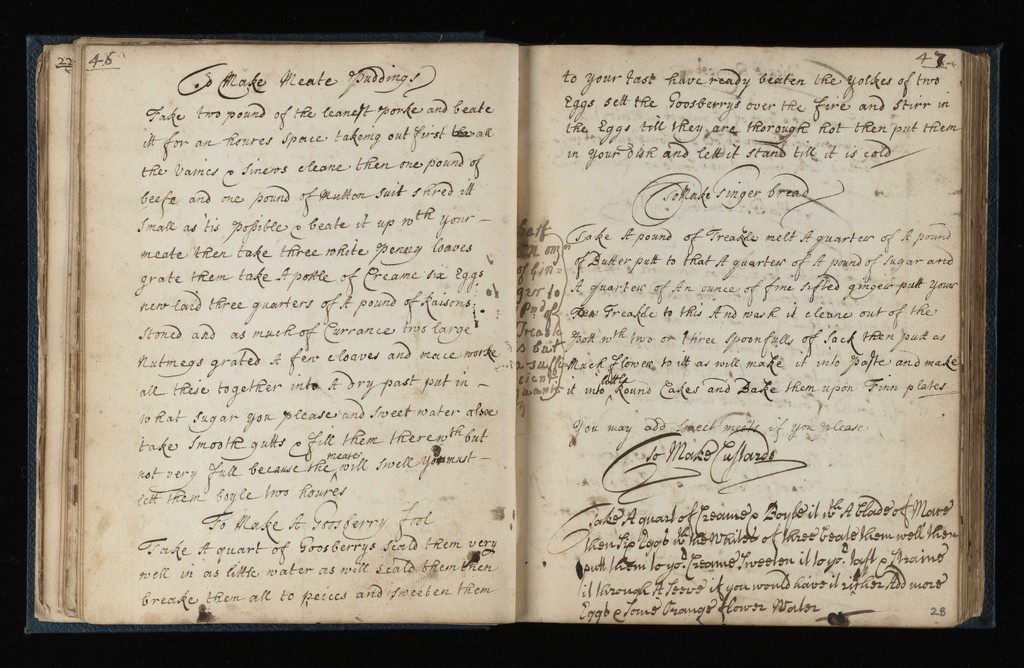 22
46
To Make Meate Puddings
Take two pound of the leanest porke and beate
itt for an houres space takeing out first all
the Vaines & sinews cleane then one pound of
beefe and one pound of Mutton suit shred itt
small as tis possible & beate it up wth your
meate then take three white penny loaves
grate them take A pottle of Creame six Eggs
new laid three quarters of A pound of Raisons
stoned and as much of Currance two large
Nutmegs grated A few cloaves and mace worke
all these together into A dry past put in
what sugar you please and sweet water alsoe
take smooth gutts & fill them therewth but
not very full because the meate will swell you must
lett them boyle two houres
To Make A Goosberry fool
Take A quart of Goosberrys scald them very
well in as little water as will scald them then
breake them all to peices and sweeten them
47
to your tast have ready beaten the yolkes of two
Eggs sett the Goosberrys over the fire and stirr in
the Eggs till they are thorough hot then put them
in your dish and lett it stand till it is cold
To Make Ginger bread
Take A pound of Treakle melt A quarter of A pound
of Butter putt to that A quarter of A pound of sugar and
A quarter of An ounce of fine sifted ginger putt your
Treakle to this And wash it cleane out of the
Pott wth two or three spoonfulls of sack then putt as
Much flower to itt as will make it into Paste and make
it into little Round Cakes and Bake them upon Tinn plates
You may add sweet meets if you please
half
An oun
of Gin-
ger to
Pnd of
Treakle
is but
a suffi
cient
quantit
y
To Make Custards
Take A quart of Creame & Boyle it wth A blade of Mace
then six Eggs wth the Whites of three beate them well then
putt them to yor Creame Sweeten it to yor tast & Straine
it through A Seeve if you would have it richer Add more
Eggs & some Orange flower Water
28